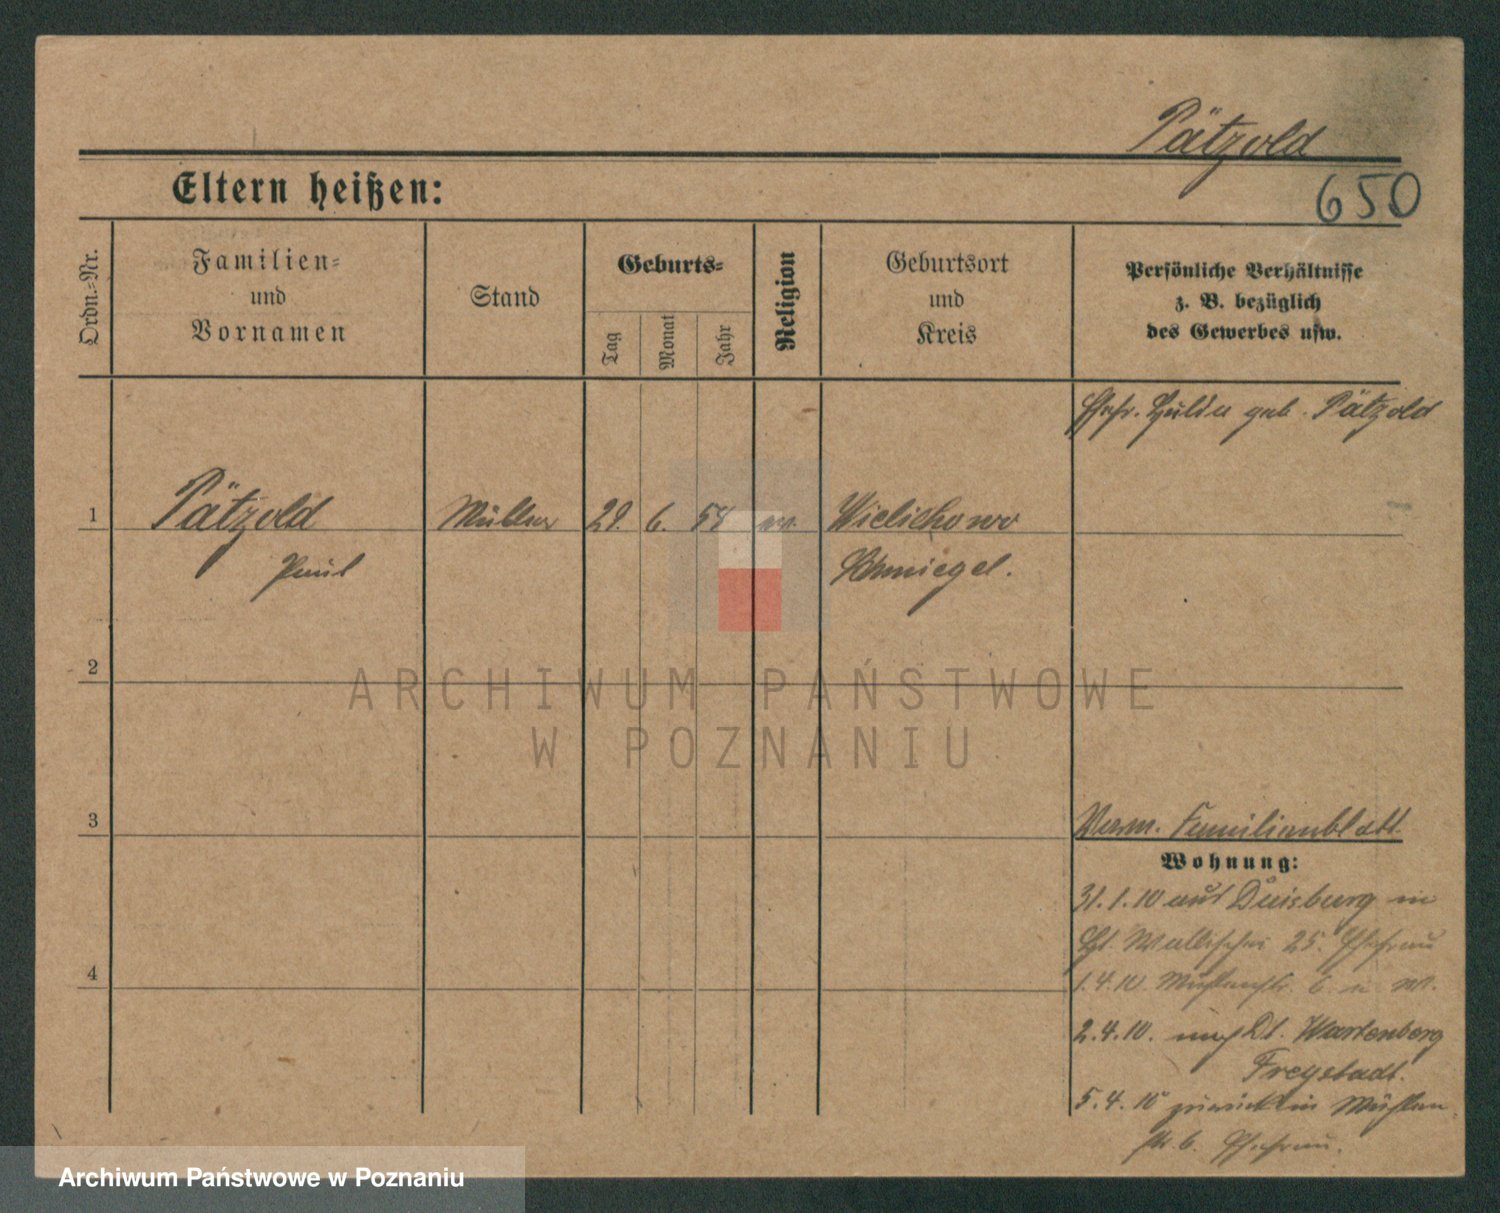 Pätzold
650
Eltern heißen:
Ordn.-Nr.
Familien-
und
Vornamen
Stand
Geburts-
Tag
Monat
Jahr
Religion
Geburtsort
und
Kreis
Persönliche Verhältnisse
z. B. bezüglich
des Gewerbes usw.
geb. Pätzold
1 Pätzold Müller 29. 6. 58 Wielichowo
Paul Schmiegel.
2
3
Verm. Familienblatt.
Wohnung:
31.1.10 aus Duisburg in
Wallischei 25. Ehefrau
4
1.4.10. Mühlenstr. 6
2.4.10. nach Dt. Wartenberg
Freystadt.
5.4.10 zurück in Mühlen
str. 6. Ehefrau.
ARCHIWUM PAŃSTWOWE
W POZNANIU
Archiwum Państwowe w Poznaniu